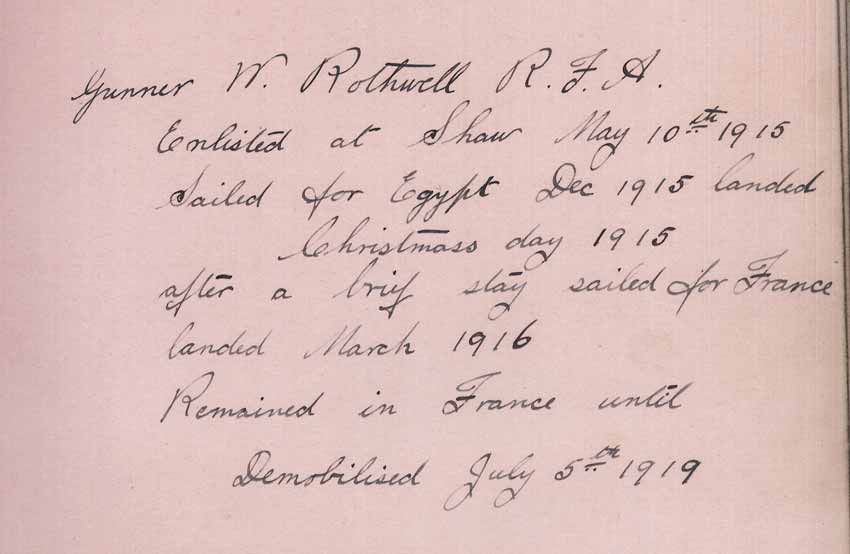 Gunner W. Rothwell R.F.A.
Enlisted at Shaw May 10th 1915
Sailed for Egypt Dec 1915 landed
Christmass day 1915
after a brief stay sailed for France
landed March 1916
Remained in France until
Demobilised July 5th 1919